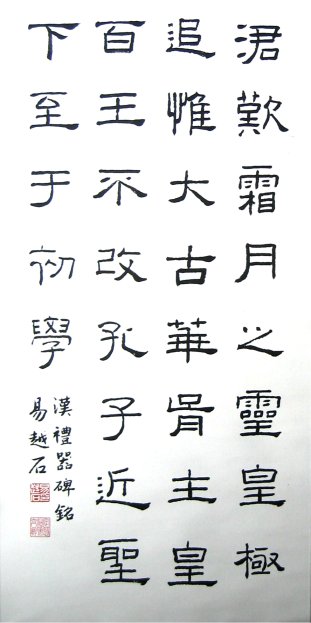 涒歎霜月之靈皇極
追惟大古華胥生皇
百王不改孔子近聖
下至于初學
漢禮器碑銘
易越石